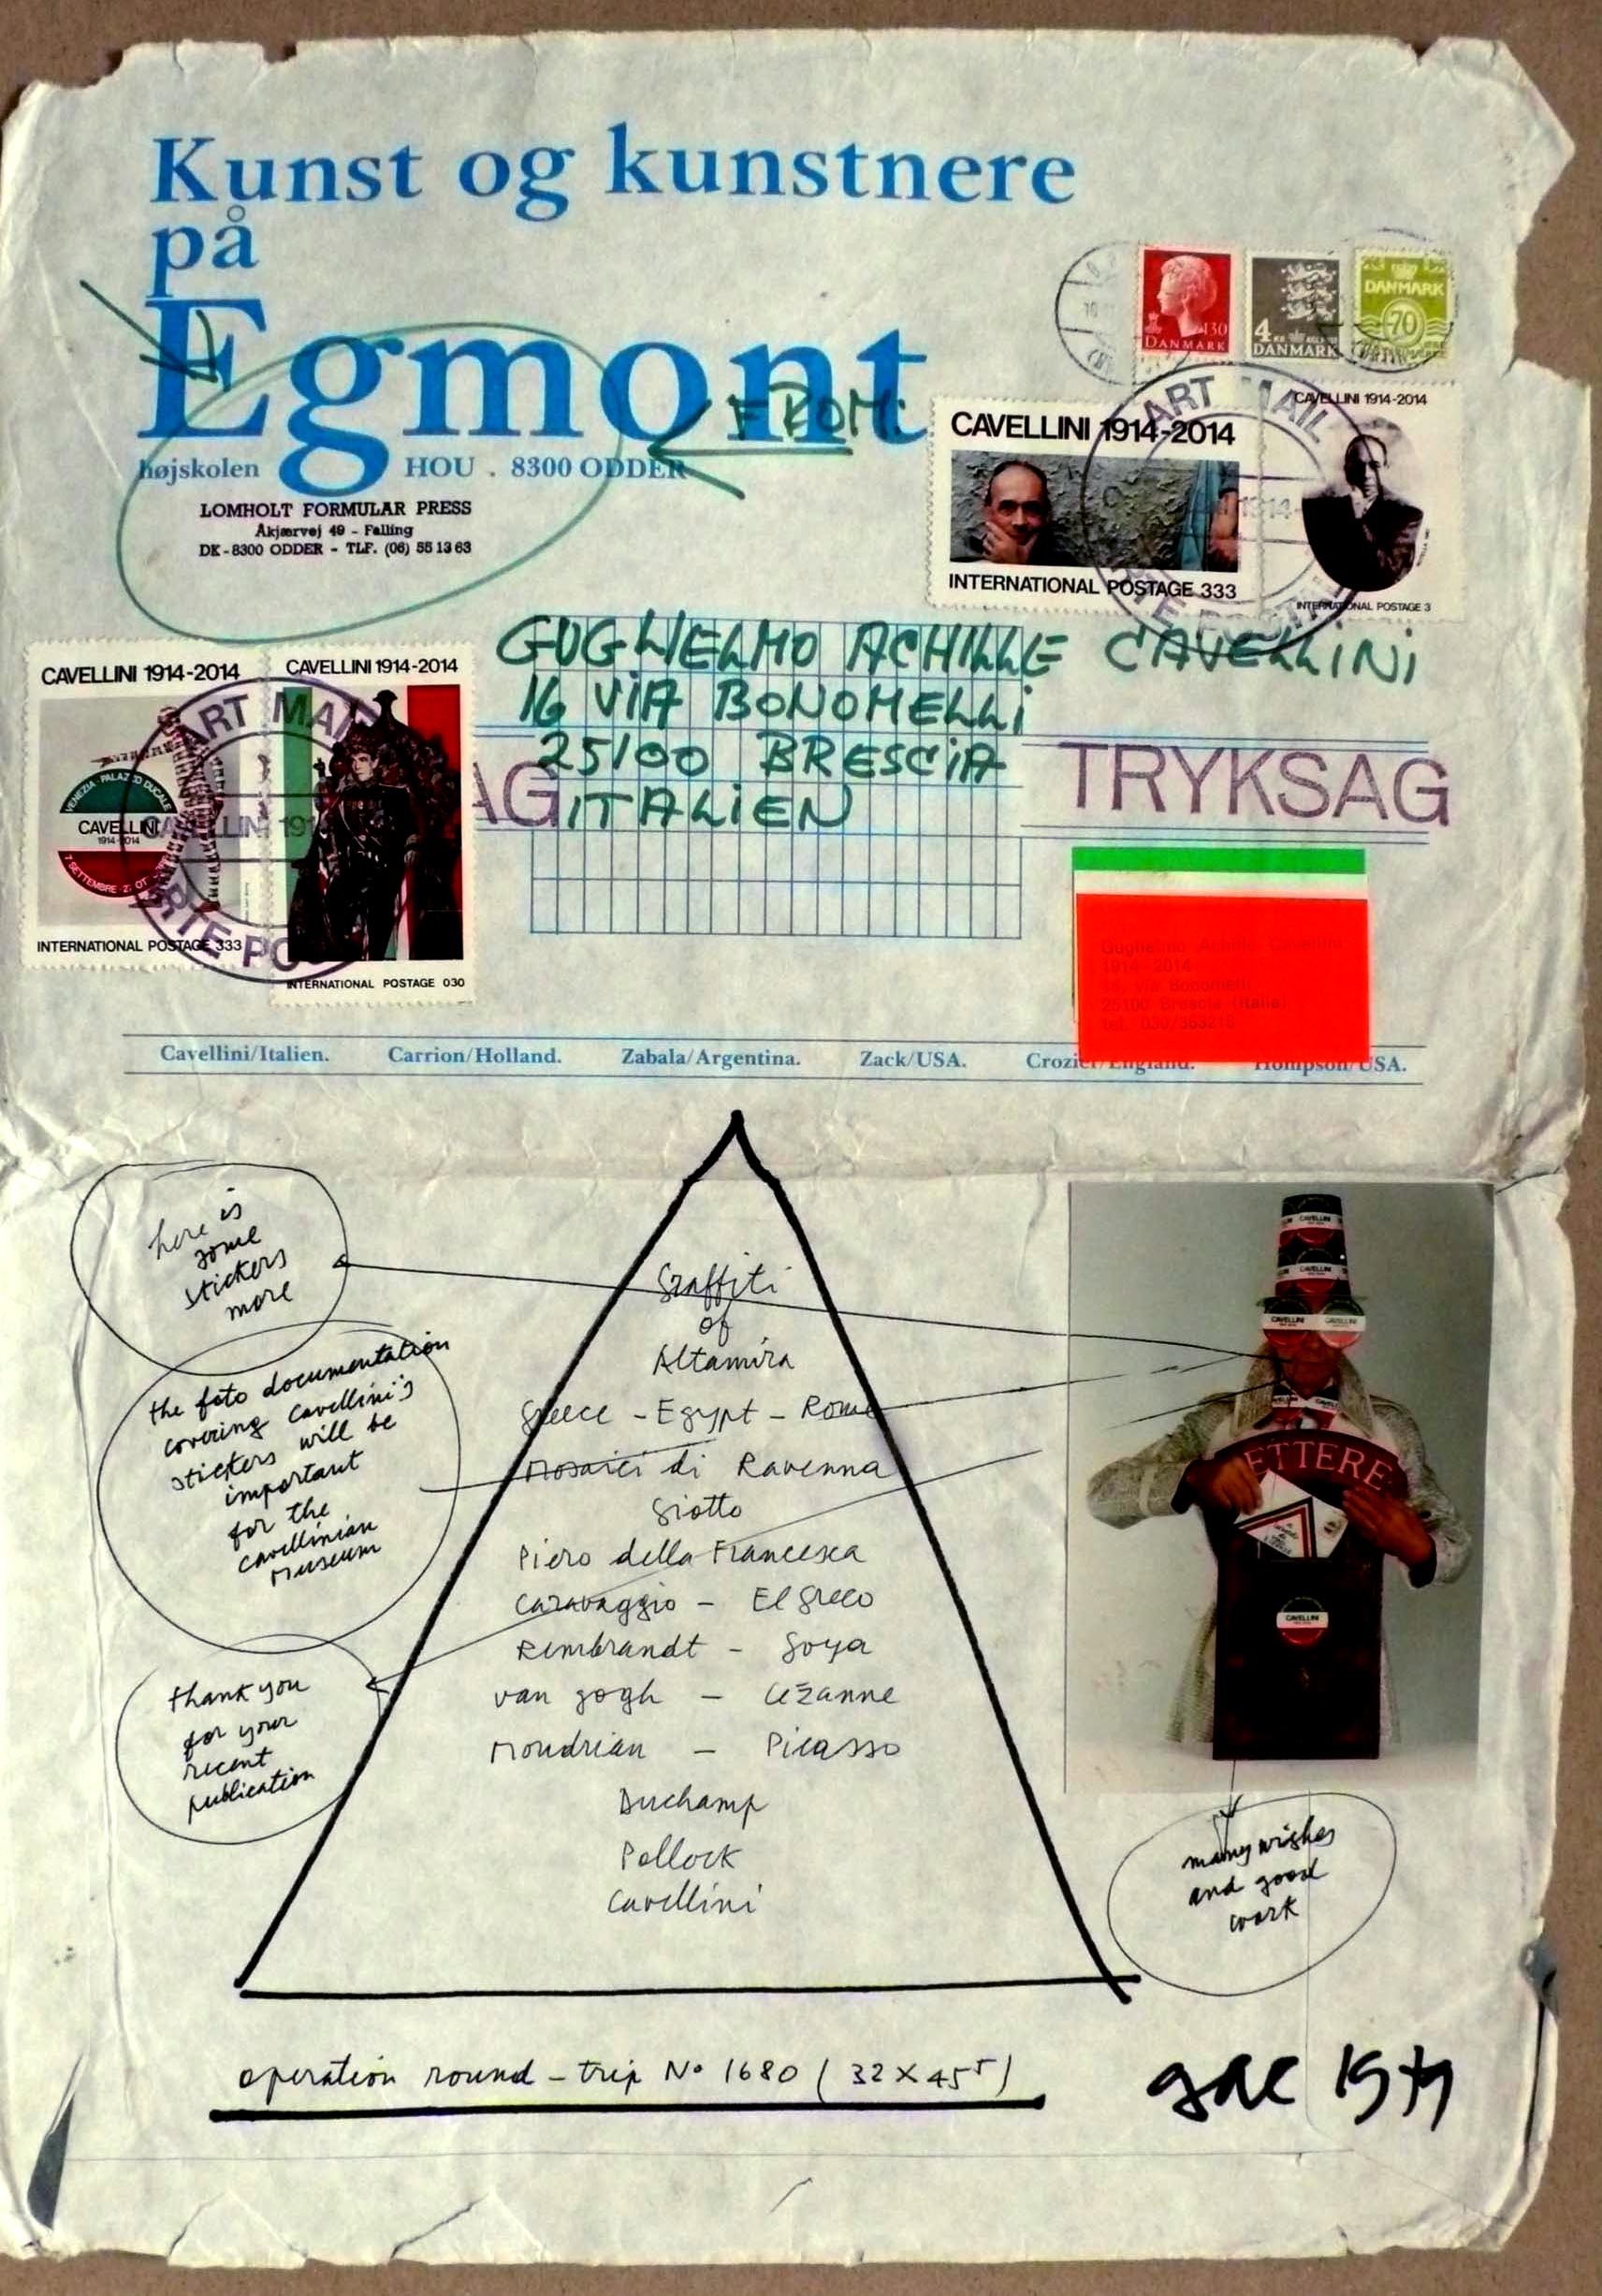 Kunst og kunstnere
på
Egmont
FROM:
højskolen HOU . 8300 ODDER
LOMHOLT FORMULAR PRESS
Åkjærvej 49 - Falling
DK-8300 ODDER - TLF. (06) 55 13 63
130
DANMARK
4
DANMARK
DANMARK
70
ART MAIL
CAVELLINI 1914-2014
INTERNATIONAL POSTAGE 333
CAVELLINI 1914-2014
INTERNATIONAL POSTAGE 3
GUGLIELMO ACHILLE CAVELLINI
16 ViA BONOMELLi
25100 BRESCiA
ITALiEN
AG
TRYKSAG
CAVELLINI 1914-2014
VENEZIA - PALAZZO DUCALE
CAVELLINI
1914-2014
7 SETTEMBRE 27 OT
INTERNATIONAL POSTAGE 333
CAVELLINI 1914-2014
INTERNATIONAL POSTAGE 030
ART MAI
RTE PO
Guglielmo Achille Cavellini
1914-2014
16, via Bonomelli
25100 Brescia (Italia)
tel. 030/363218
Cavellini/Italien. Carrion/Holland. Zabala/Argentina. Zack/USA. Crozier/England. Hompson/USA.
here is
some
stickers
more
the foto documentation
covering Cavellini's
stickers will be
important
for the
cavellinian
museum
thank you
for your
recent
publication
Graffiti
of
Altamira
Greece - Egypt - Rome
Mosaici di Ravenna
Giotto
Piero della Francesca
Caravaggio - El Greco
Rembrandt - Goya
van gogh - Cézanne
Mondrian - Picasso
Duchamp
Pollock
Cavellini
CAVELLINI
CAVELLINI
CAVELLINI
CAVELLINI
LETTERE
CAVELLINI
many wishes
and good
work
operation round-trip N° 1680 (32 x 45⁵)
gac 1979